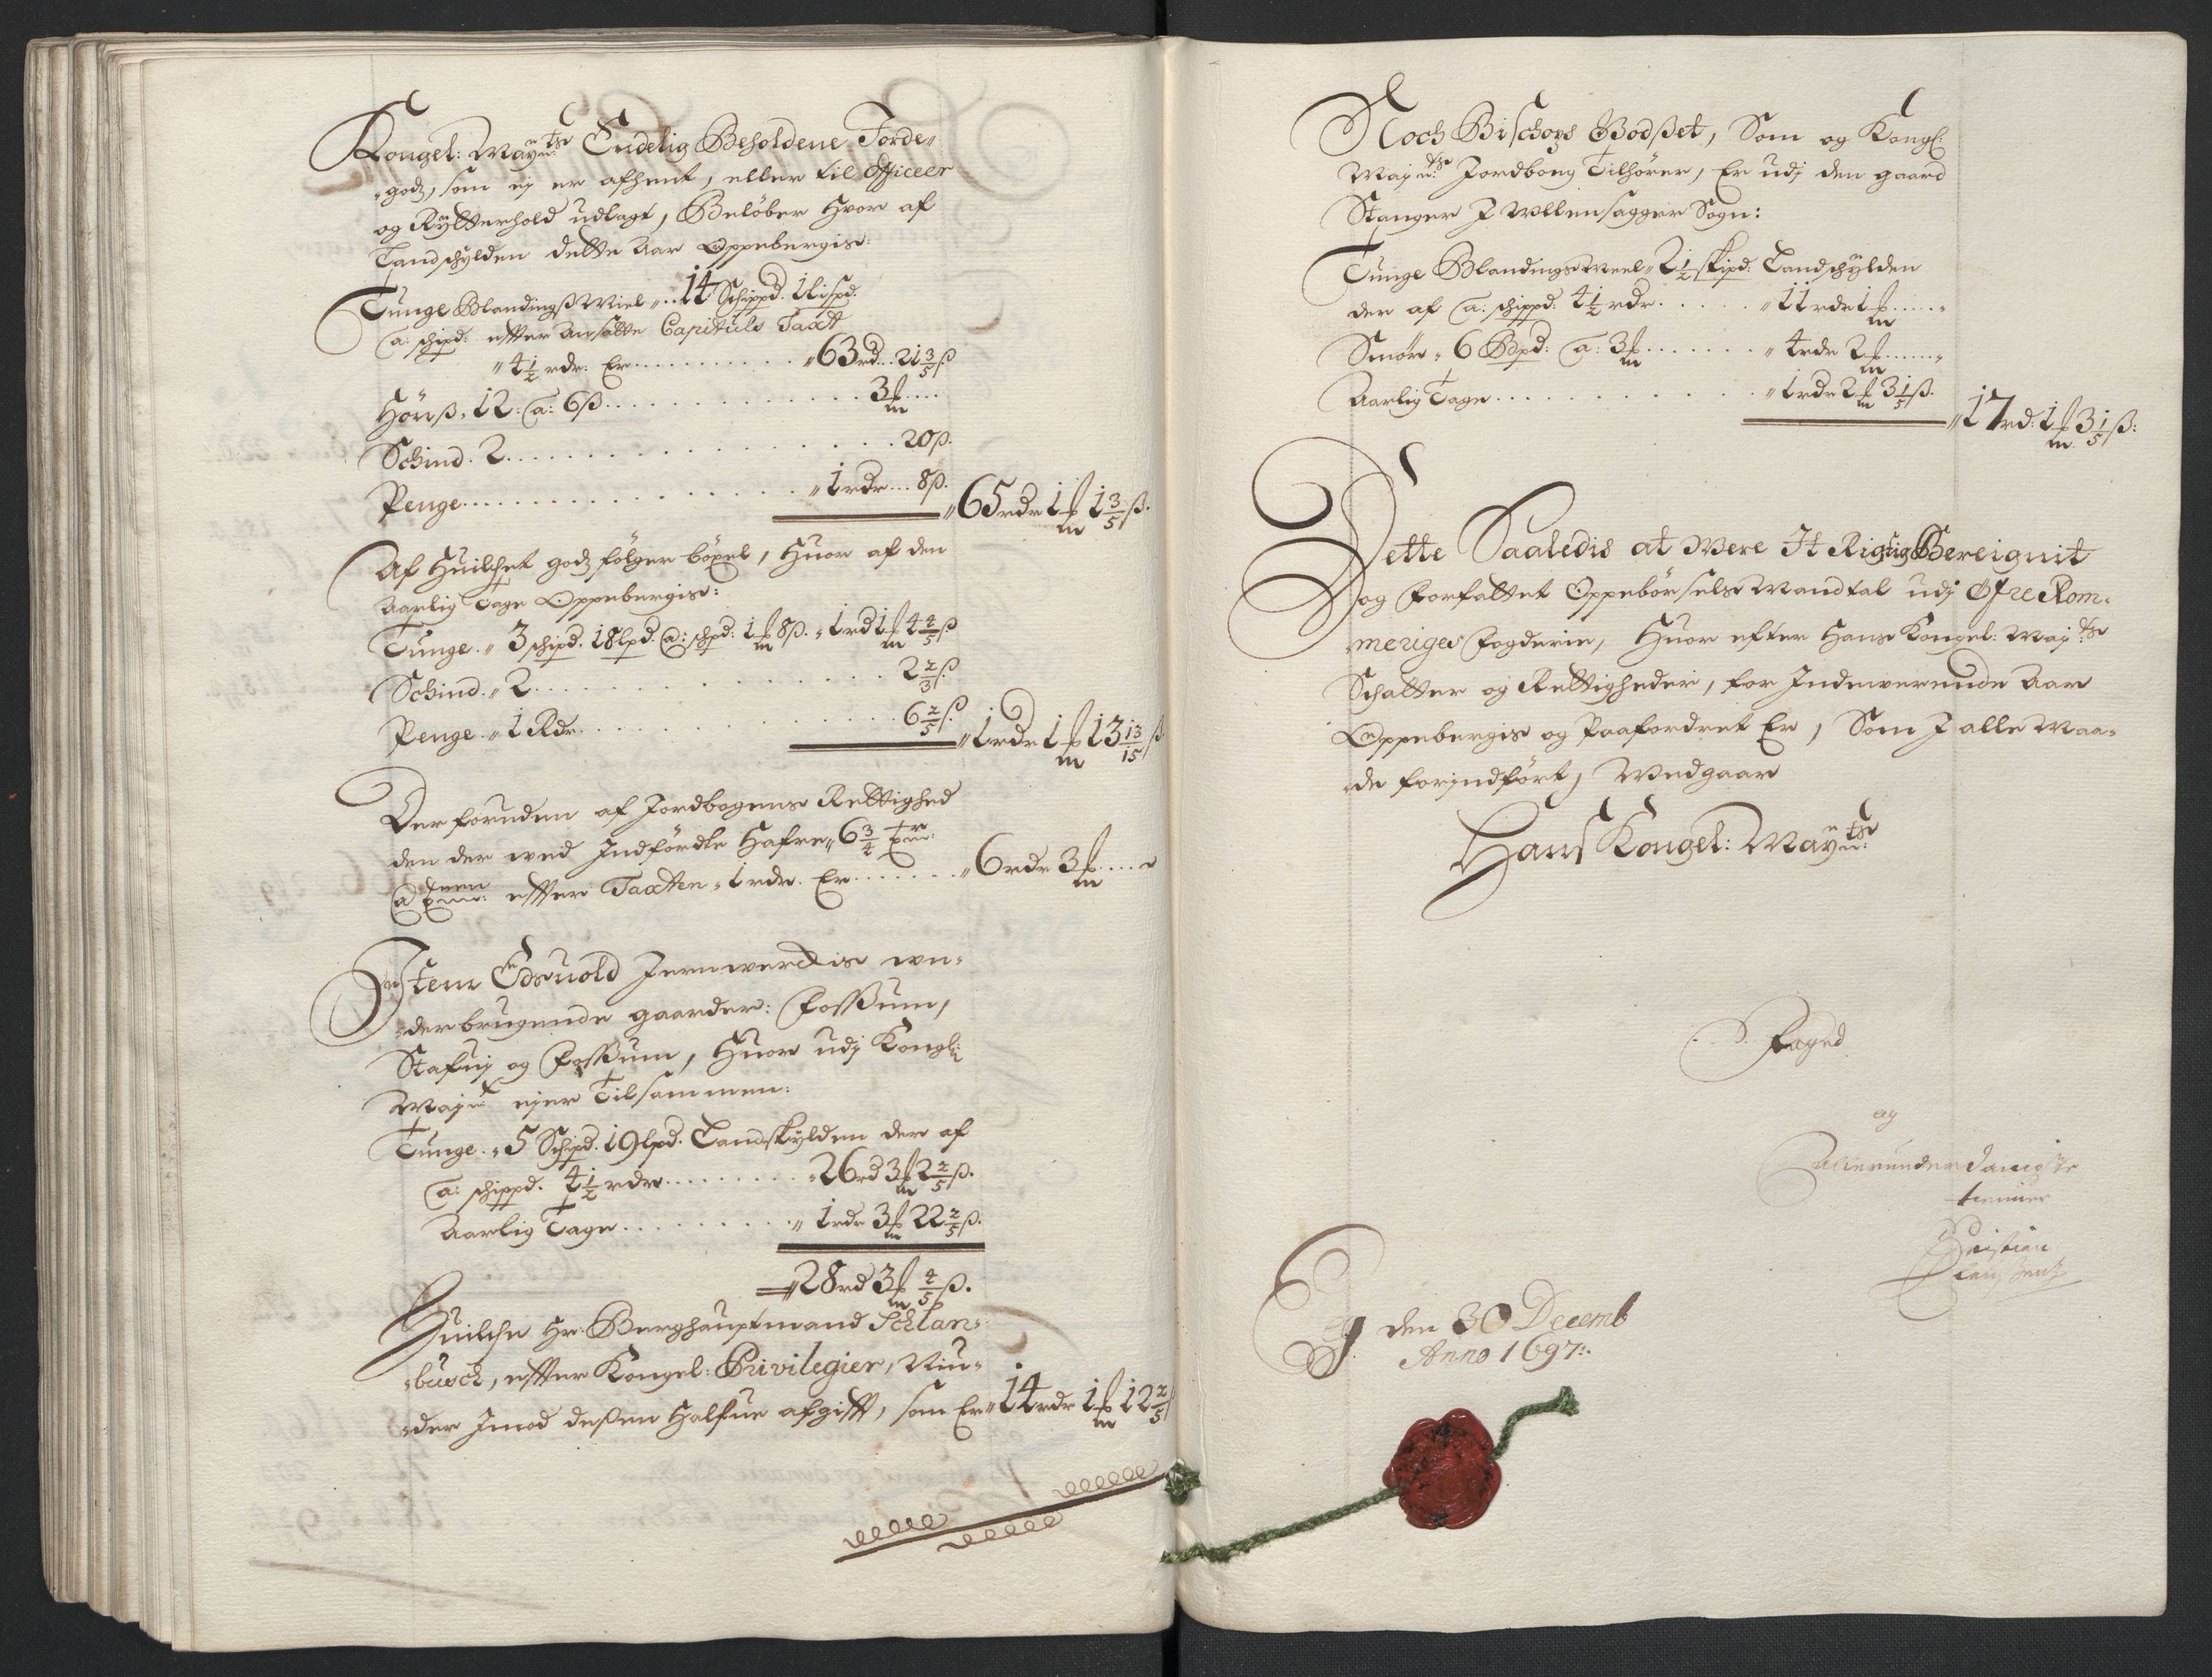 Kongel: Mayᵗˢ Endelig Beholdene Jorde„
„godz, som ej er afhent, eller til Officeer
og Rytterhold udlagt, Beløber Hvor af
Landschylden dette Aar Oppebergis:
Tunge Blandingß Miel „ 14 Schippd. 1 Lispd.
a: schipd: effter Ansatte Capituls Taxt
„ 4½ rdr: Er .......... „ 63 rd .. 21 3/5 ß
Hönß „ 12: a: 6 ß .......... 3 m ....
Schind. 2 .......... 20 ß.
Penge .......... „ 1 rdr ... 8 ß.
„ 65 rdr 1 m 1 3/5 ß.
Af Huilchet godz følger böxel, Huor af den
Aarlig Tage Oppebergis:
Tunge „ 3 schipd. 18 lpd. a: schpd: 1 m 8 ß. „ 1 rd 1 m 4 4/5 ß
Schind. „ 2 .......... 2 2/3 ß
Penge „ 1 Rdr .......... 6 2/5 ß.
„ 1 rdr 1 m 13 13/15 ß
Der foruden af Jordbogens Rettighed
den der wed Indfördte Hafre „ 6 3/4 tr:
a tnen: effter Taxten „ 1 rdr. Er ....... „ 6 rdr 3 m ....
Item Edsuold Jernwerckis un„
„derbrugende gaarder: Fossum,
Stafnj og Fossum, Huor udj Kongl:
Mayᵗ ejer Tilsammen:
Tunge „ 5 Schpd. 19 lpd. Landskylden der af
a: schippd. 4½ rdr ......... „ 26 rd 3 m 2 2/5 ß.
Aarlig Tage .......... „ 1 rdr 3 m 22 2/5 ß.
„ 28 rd 3 m 4/5 ß.
Huilche Hr: Berghauptmand Schlan„
„busch, effter Kongel: Privilegier, Niu„
„der Imod deßen Halfue afgifft, som Er „ 14 rdr 1 m 12 2/5
Noch Bischops Godßet, Som og Kongl:
Mayᵗˢ Jordbog Tilhörer, Er udj den gaard
Stanger I Ullensagger Sogn:
Tunge Blandings Meel „ 2½ skipd: Landschylden
der af a: schippd: 4½ rdr ..... „ 11 rdr 1 m .....
Smör „ 6 Bpd: a: 3 m ....... „ 4 rdr 2 m ......
Aarlig Tage ........... „ 1 rdr 2 m 3 1/5 ß.
„ 17 rd: 1 m 3 1/5 ß:
Dette Saaledis at Were It Rigtig Bereignit
og Forfattet Oppebörsels Mandtal udj Øfre Rom„
„meriges Fogderie, Huor efter Hans Kongel: Mayᵗˢ
Schatter og Rettigheder, for Indewerende Aar
Oppebergis og Paafordret Er, Som I alle Maa„
„de forindfört, Wedgaar
Hans Kongel: Mayᵗˢ
Foged
og
Allerunderdanigste
tienner
Christian
Clausenß
Eg den 30 Decemb
Anno 1697:.